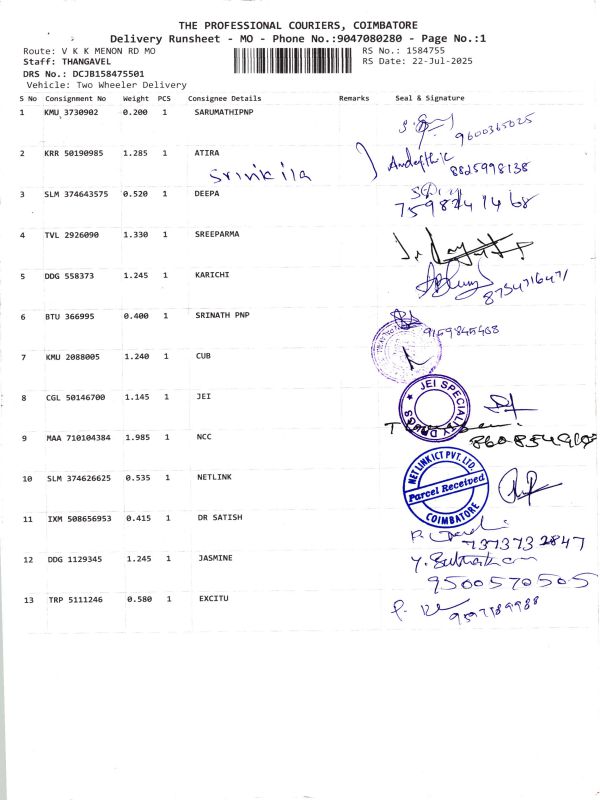 THE PROFESSIONAL COURIERS, COIMBATORE
Delivery Runsheet - MO - Phone No.:9047080280 - Page No.:1
Route: V K K MENON RD MO
RS No.: 1584755
Staff: THANGAVEL
RS Date: 22-Jul-2025
DRS No.: DCJB158475501
Vehicle: Two Wheeler Delivery
S No Consignment No Weight PCS Consignee Details Remarks Seal & Signature
1 KMU 3730902 0.200 1 SARUMATHIPNP
9600365025
2 KRR 50190985 1.285 1 ATIRA
Srinikila
8825998138
3 SLM 374643575 0.520 1 DEEPA
4 TVL 2926090 1.330 1 SREEPARMA
5 DDG 558373 1.245 1 KARICHI
8754716471
6 BTU 366995 0.400 1 SRINATH PNP
7 KMU 2088005 1.240 1 CUB
8 CGL 50146700 1.145 1 JEI
JEI SPECIALITY DRUGS
9 MAA 710104384 1.985 1 NCC
10 SLM 374626625 0.535 1 NETLINK
NET LINK ICT PVT. LTD.
Parcel Received
COIMBATORE
11 IXM 508656953 0.415 1 DR SATISH
7373732847
12 DDG 1129345 1.245 1 JASMINE
9500570505
13 TRP 5111246 0.580 1 EXCITU